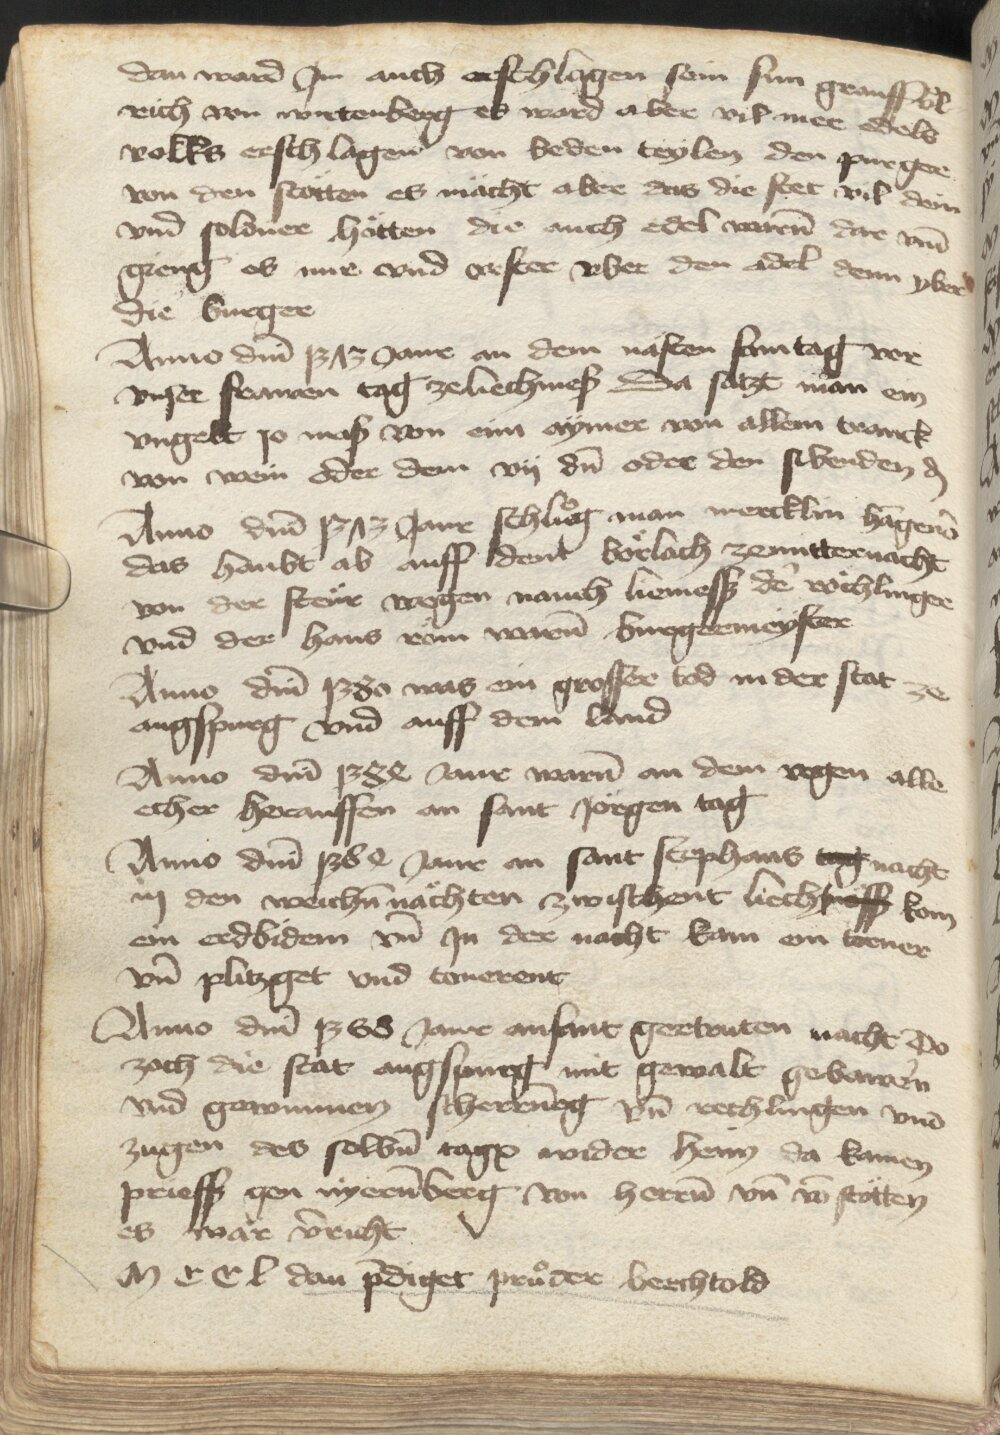 dan ward Jm auch erschlagen sein sun grauff Vͦl
rich von wirtenberg es ward aber vil mer edels
volks erschlagen von beden teylen den purger
von den stötten es mächt aber das die stet vil dein
vnd soldner hötten die auch edel warn̄ dar vm̄
gieng es mir vnd vaster vber den adel denn yber
die burger
Anno dm̄ 1373 Jaur an dem nästen suntag vor
vnser frawen tag ze liechmeß Da satzt man ein
vngelt jo maß von eim aymer von allem tranck
von wein oder dem vij dn̄ oder den sibenden ₰
Anno dm̄ 1373 Jaur schluͦg man mercklin hagen̄
das haubt ab auff dem börlach ze mitternacht
von der steur wegen nauch liemeß de röchlinger
vnd der hans röm warn̄ burgermeyster
Anno dm̄ 1380 was ein grosser tod in der stat ze
augspurg vnd auff dem land
Anno dm̄ 138 Jaur warn̄ an dem regen alle
echer heraussen an sant Jörgen tag
Anno dm̄ 138 Jaur an sant stephans tag nacht
in den weichn̄nächten zwischent liechtmöß kom
ein erdbidem vn̄ Jn der nacht kam ein toner
vn̄ plitzget vnd tonerent
Anno dm̄ 1388 Jaur an sant gertruten nacht Do
zoch die stat augspurg mit gewalt gebawern
vnd gewunnen vn̄ rechlingen vnd
zugen des selbn̄ tags wider heim da kamen
prieff gen nyern̄berg von herrn̄ vn̄ vō stötten
es wär v̄richt
M C C l dau p̄diget pruͦder berchtold